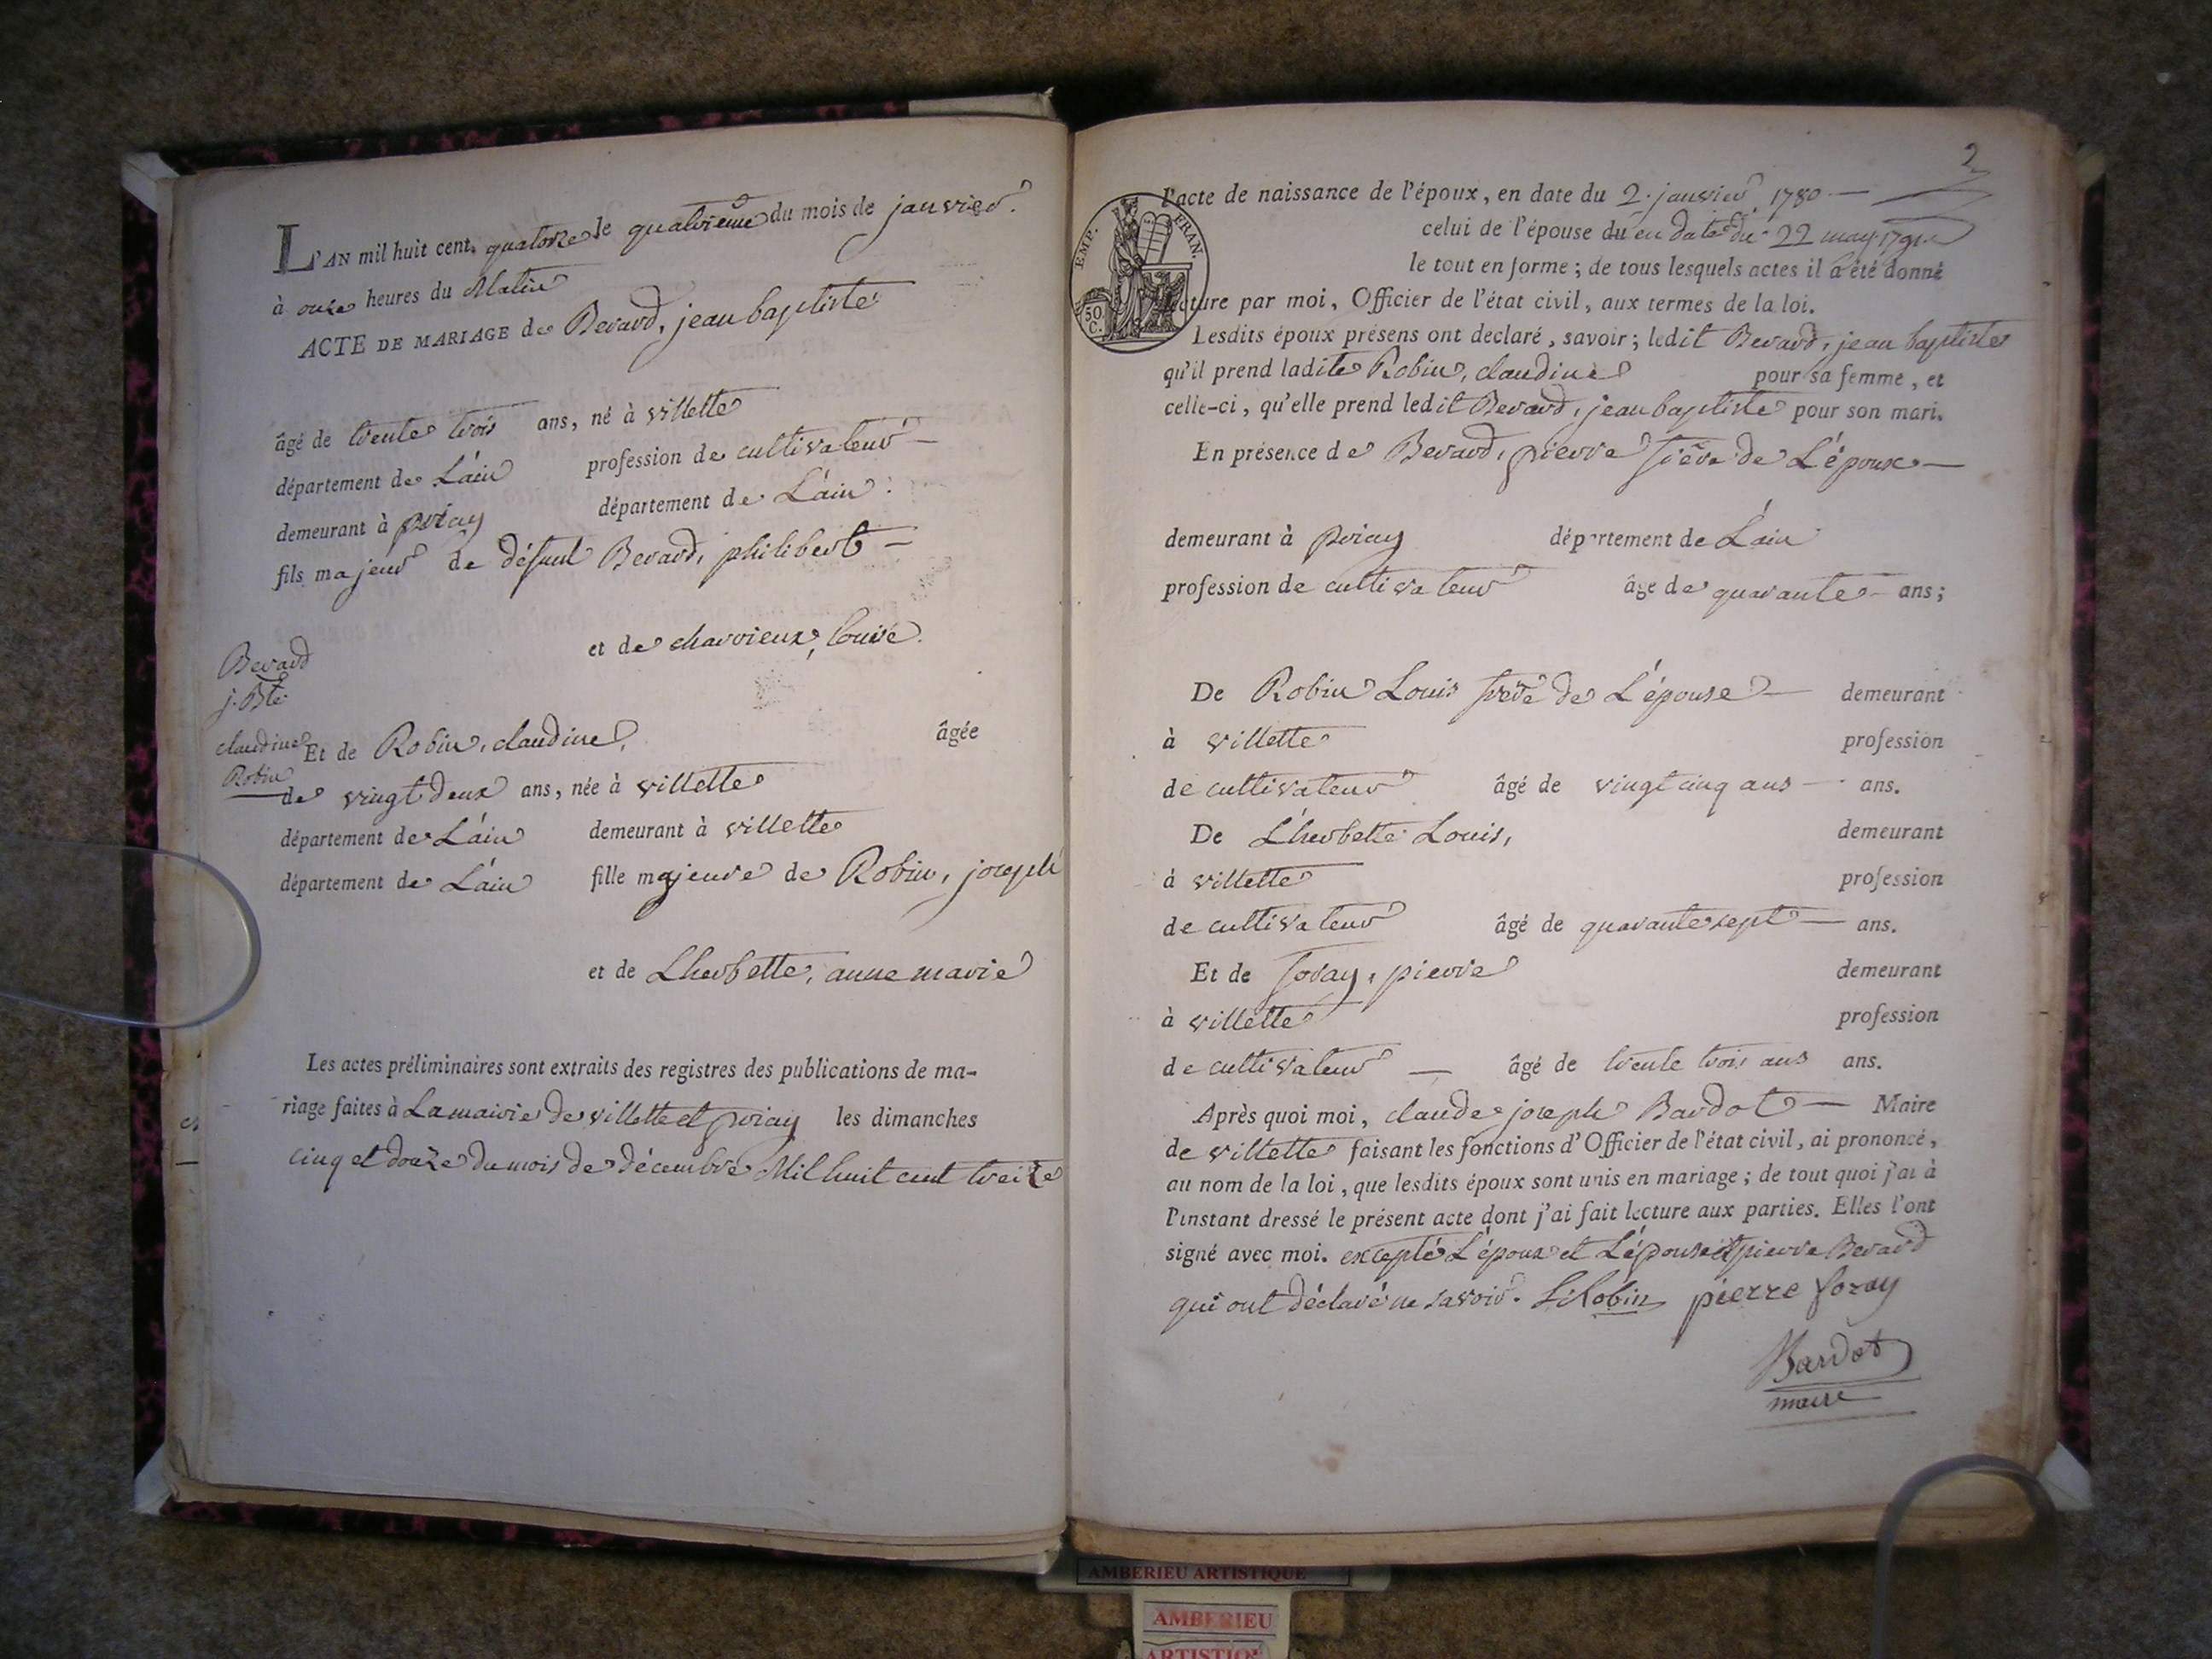 L'AN mil huit cent quatorze le quatrieme du mois de janvier.
à onze heures du Matin
ACTE DE MARIAGE de Berard, jean baptiste
âgé de trente trois ans, né à villette
département de L'ain profession de cultivateur
demeurant à priay département de L'ain.
fils majeur de défunt Berard, philibert
et de charvieux, Louise.
Berard
j. Bte.
claudine
Robin
Et de Robin, claudine, âgée
de vingt deux ans, née à villette
département de L'ain demeurant à villette
département de L'ain fille majeure de Robin, joseph
et de Lherbette, anne marie
Les actes préliminaires sont extraits des registres des publications de ma-
riage faites à La mairie de villette et priay les dimanches
cinq et douze du mois de décembre Mil huit cent treize
2
l'acte de naissance de l'époux, en date du 2. janvier 1780
celui de l'épouse du en date du 22 may 1791
le tout en forme ; de tous lesquels actes il a été donné
lecture par moi, Officier de l'état civil, aux termes de la loi.
EMP. FRAN.
50.
C.
Lesdits époux présens ont déclaré, savoir ; ledit Berard, jean baptiste
qu'il prend ladite Robin, claudine pour sa femme, et
celle-ci, qu'elle prend ledit Berard, jean baptiste pour son mari.
En présence de Berard, pierre frère de L'époux
demeurant à priay département de L'ain
profession de cultivateur âge de quarante ans ;
De Robin Louis frère de L'épouse demeurant
à villette profession
de cultivateur âgé de vingt cinq ans ans.
De L'herbette Louis, demeurant
à villette profession
de cultivateur âgé de quarante sept ans.
Et de foray, pierre demeurant
à villette profession
de cultivateur âgé de trente trois ans ans.
Après quoi moi, claude joseph Bardot Maire
de villette faisant les fonctions d'Officier de l'état civil, ai prononcé,
au nom de la loi, que lesdits époux sont unis en mariage ; de tout quoi j'ai à
l'instant dressé le présent acte dont j'ai fait lecture aux parties. Elles l'ont
signé avec moi. excepté L'époux et L'épouse et pierre Berard
qui ont déclaré ne savoir. L Robin pierre foray
Bardot
maire
AMBERIEU ARTISTIQUE
AMBERIEU